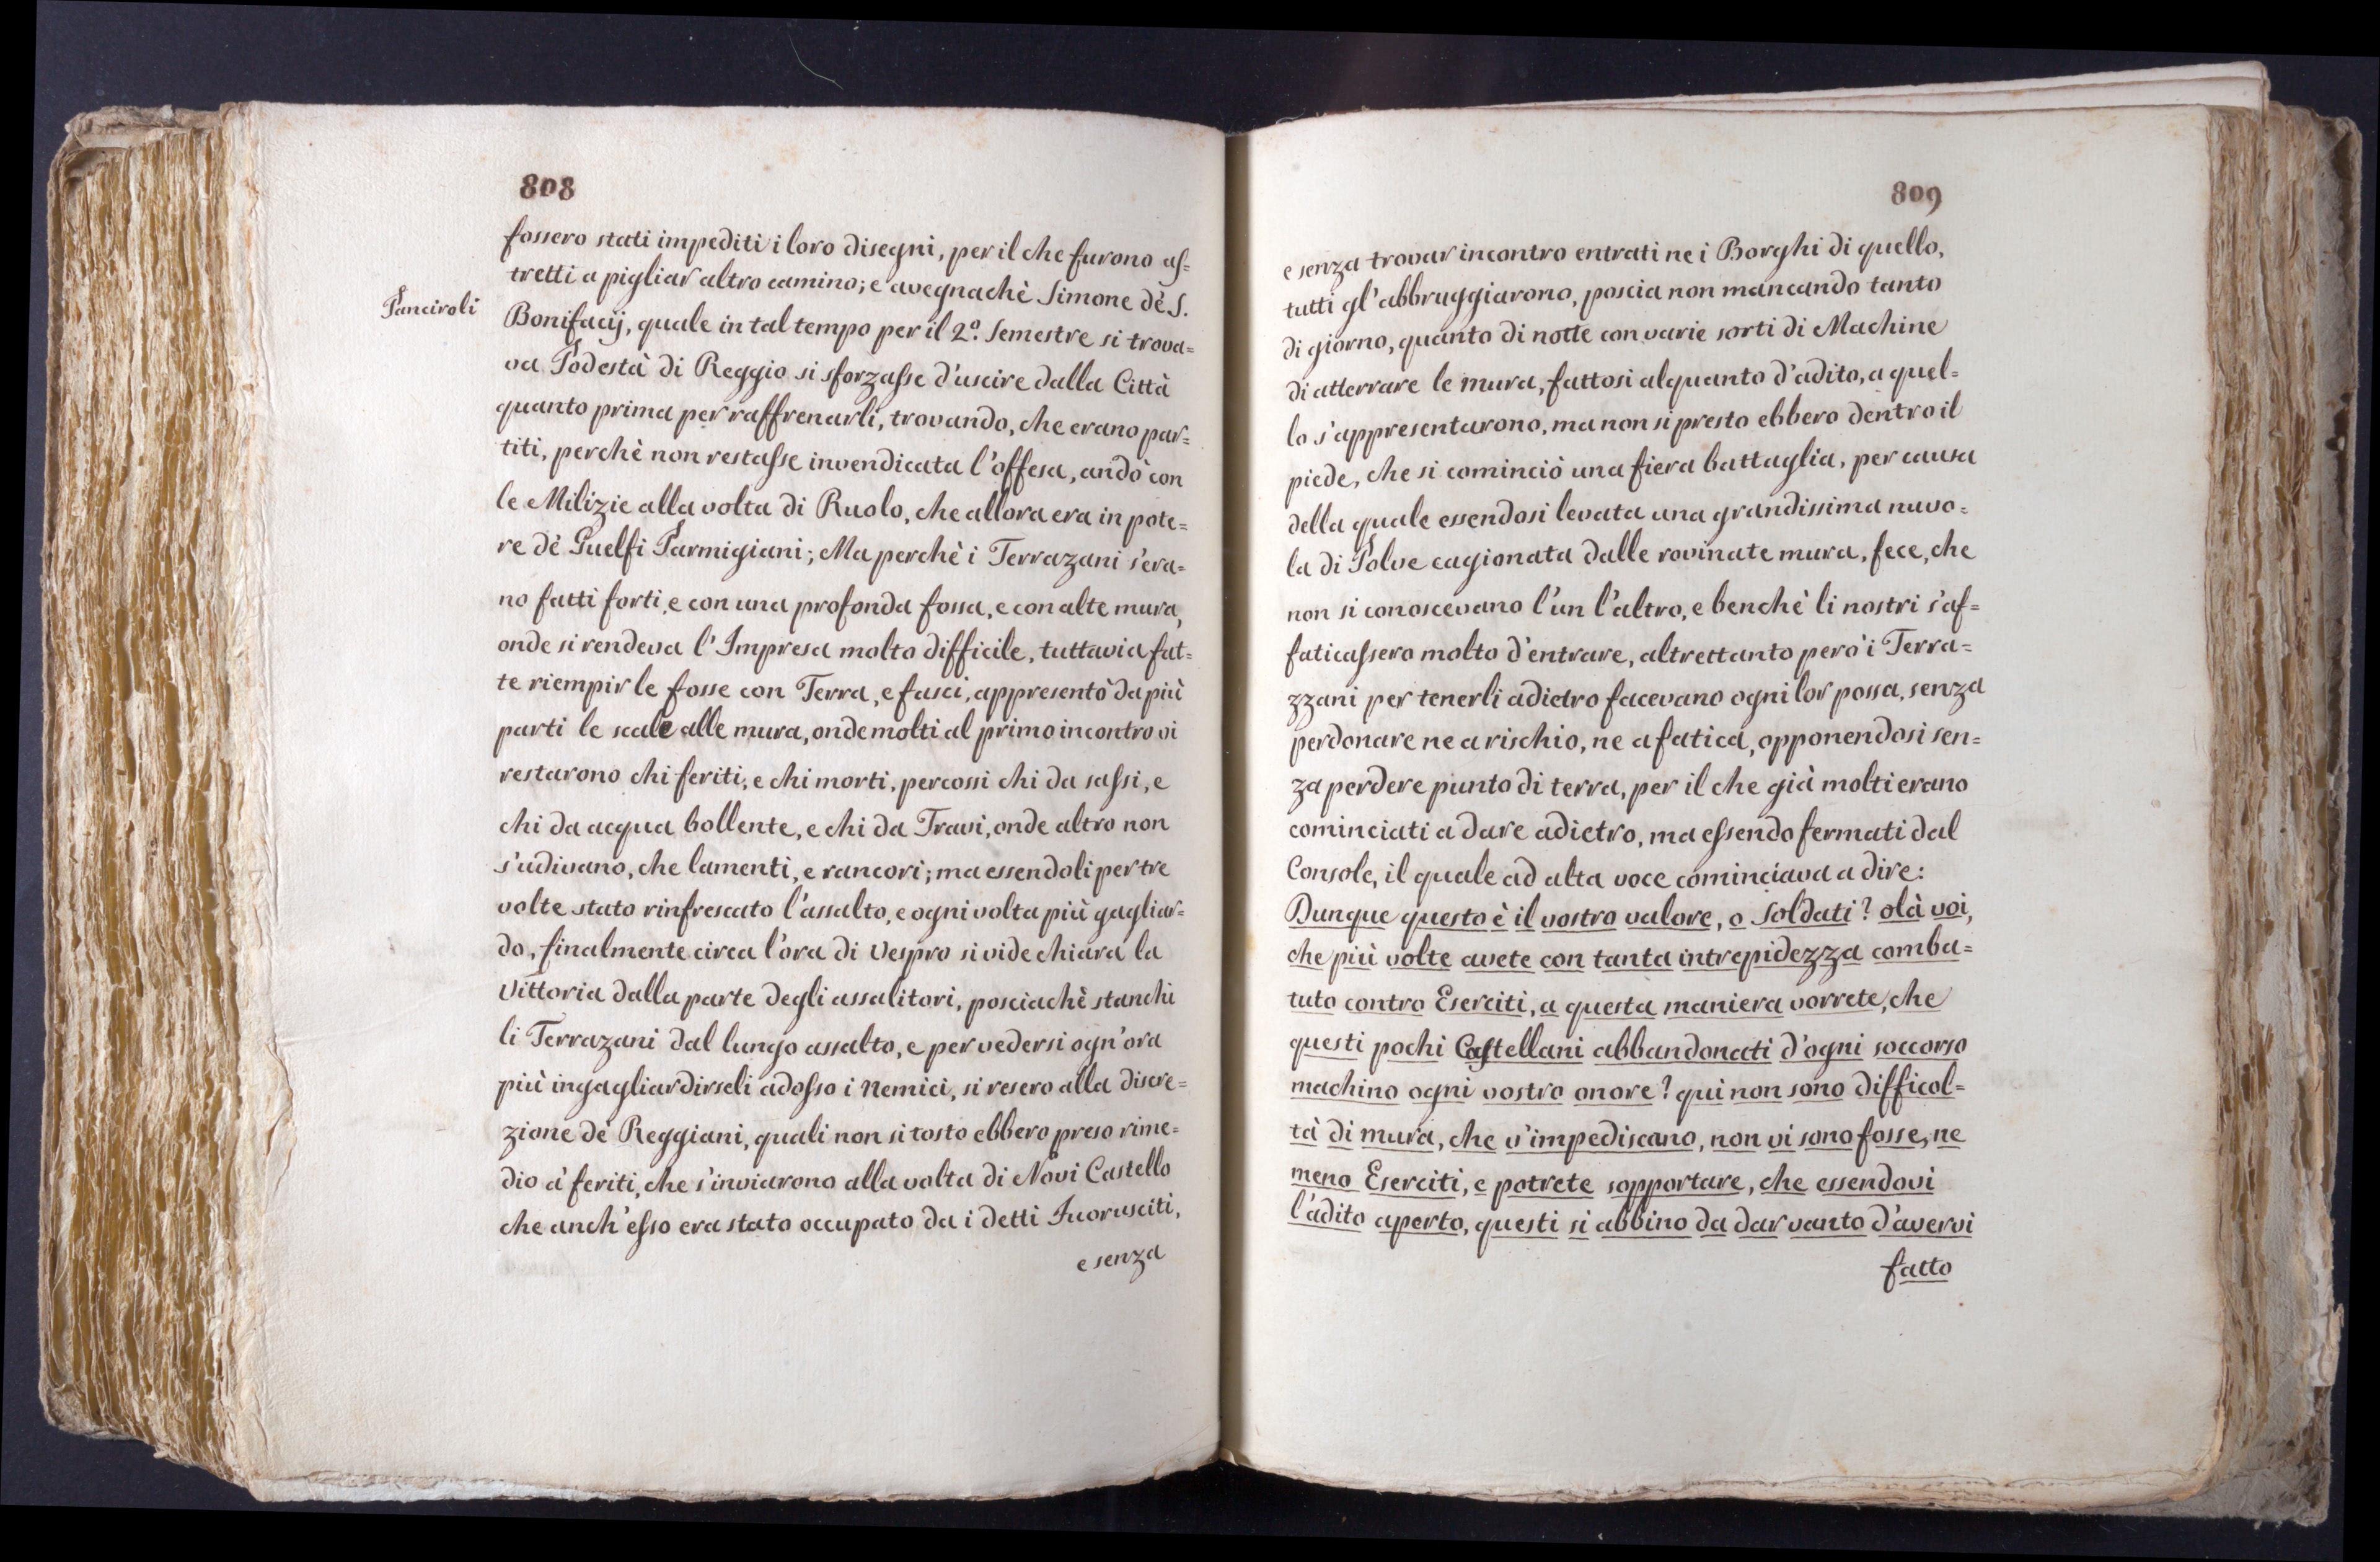 808
fossero stati impediti i loro disegni, per il che furono as=
tretti a pigliar altro camino; e avegnachè Simone dè S.
Panciroli
Bonifacij, quale in tal tempo per il 2º. Semestre si trova=
va Podestà di Reggio si sforzasse d'uscire dalla Città
quanto prima per raffrenarli, trovando, che erano par=
titi, perchè non restasse invendicata l'offesa, andò con
le Milizie alla volta di Ruolo, che allora era in pote=
re dè Guelfi Parmigiani; Ma perchè i Terrazani s'era=
no fatti forti, e con una profonda fossa, e con alte mura,
onde si rendeva l'Impresa molto difficile, tuttavia fat=
te riempir le fosse con Terra, e fasci, appresentò da più
parti le scale alle mura, onde molti al primo incontro vi
restarono chi feriti, e chi morti, percossi chi da sassi, e
chi da acqua bollente, e chi da Travi, onde altro non
s'udivano, che lamenti, e rancori; ma essendoli per tre
volte stato rinfrescato l'assalto, e ogni volta più gagliar=
do, finalmente circa l'ora di Vespro si vide chiara la
Vittoria dalla parte degli assalitori, posciachè stanchi
li Terrazani dal lungo assalto, e per vedersi ogn'ora
più ingagliardirseli adosso i Nemici, si resero alla discre=
zione dè Reggiani, quali non si tosto ebbero preso rime=
dio à feriti, che s'inviarono alla volta di Novi Castello
che anch'esso era stato occupato da i detti Fuorusciti,
e senza
809
e senza trovar incontro entrati ne i Borghi di quello,
tutti gl'abbruggiarono, poscia non mancando tanto
di giorno, quanto di notte con varie sorti di Machine
di atterrare le mura, fattosi alquanto d'adito, a quel=
lo s'appresentarono, ma non si presto ebbero dentro il
piede, che si cominciò una fiera battaglia, per causa
della quale essendosi levata una grandissima nuvo=
la di Polve cagionata dalle rovinate mura, fece, che
non si conoscevano l'un l'altro, e benchè li nostri s'af=
faticassero molto d'entrare, altrettanto però i Terra=
zzani per tenerli adietro facevano ogni lor possa, senza
perdonare ne a rischio, ne a fatica, opponendosi sen=
za perdere punto di terra, per il che già molti erano
cominciati a dare adietro, ma essendo fermati dal
Console, il quale ad alta voce cominciava a dire:
Dunque questo è il vostro valore, o Soldati? olà voi,
che più volte avete con tanta intrepidezza comba=
tuto contro Eserciti, a questa maniera vorrete, che
questi pochi Castellani abbandonati d'ogni soccorso
machino ogni vostro onore? qui non sono difficol=
tà di mura, che v'impediscano, non vi sono fosse, ne
meno Eserciti, e potrete sopportare, che essendovi
l'adito aperto, questi si abbino da dar vanto d'avervi
fatto